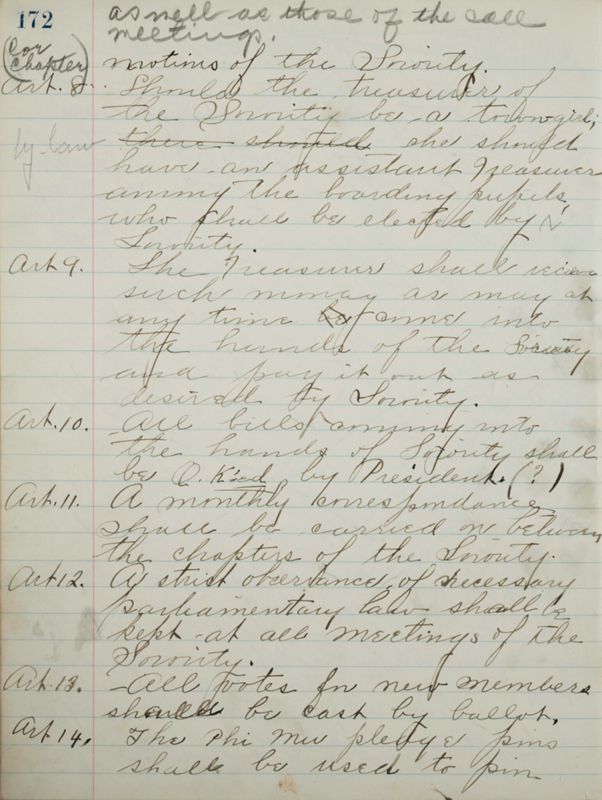 172
as well as those of the call
meetings.
(Cor
Chapter)
motions of the Sorority.
Art. 8. Should the treasurer of
the Sorority be a town girl;
by-law there should she should
have an assistant Treasurer
among the boarding pupils,
who shall be elected by
Sorority.
Art 9. The Treasurer shall receive
such money as may at
any time be come into
the hands of the Sorority
and pay it out as
desired by Sorority.
Art. 10. All bills coming into
the hands of Sorority shall
be O. K'ed by President. (?)
Art. 11. A monthly correspondance
shall be carried on between
the chapters of the Sorority.
Art 12. A strict observance of necessary
parliamentary law shall be
kept at all meetings of the
Sorority.
Art. 13. All votes for new members
shall be cast by ballot.
Art 14. The Phi Mu pledge pins
shall be used to pin